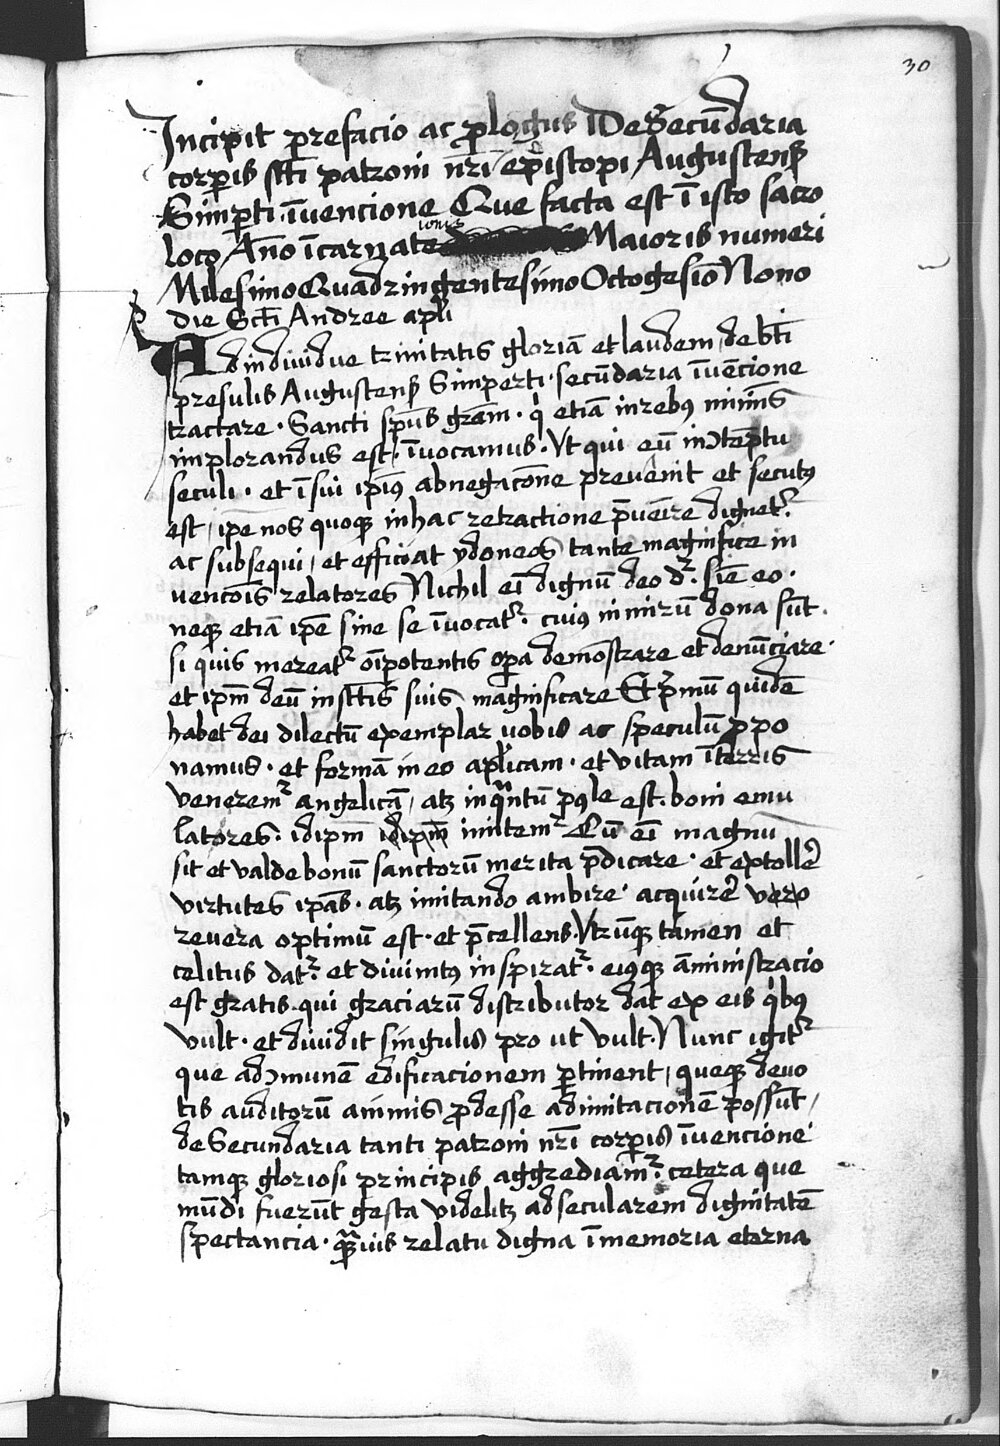 30
Incipit prefacio ac prologus De Secūdaria
corporis scti patroni nr̄i episcopi Augusteñ
Simperti īuencione Que facta est ī isto sacro
loco Año īcarnate ionis Maioris numeri
Milesimo Quadringentesimo Octogesiō Nono
die Scti Andree apłi
Ad indiuidue trinitatis gloriā et laudem, de bti
presulis Augusteñ Simperti · secūdaria īuēcione
tractare · Sancti sp̄us grām · qi etiā in rebꝯ minimis
implorandus est, īuocamus · Vt qui eū in ꝯtēptu
seculi · et ī sui ip̄iꝯ abnegacōne preuenit et secutꝯ
est, ip̄e nos quoqꝫ in hac retractione p̄ueīre dignetr ·
ac subsequi, et efficiat ydoneos tante magnifice in
uencōis relatores Nichil eī dignū deo dr · sīe eo ·
neqꝫ etiā ip̄e sine se īuocatr · cuiꝯ in mirū dona sūt ·
si quis mereatr oīpotentis opa demōstrare et denūciare ·
et ip̄m deū in sctis suis magnificare Et p̄mū quidē
habet dei dilectū exemplar uobis ac speculū ꝓpo
namus · et formā in eo apłicam · et vitam ī terris
veneremr angelicā, atꝫ inqntū poꝯle est · boni emu
latores · idip̄m idip̄m imitemr Cū eī magnū
sit et valde bonū sanctorū merita p̄dicare · et extollere
virtutes ip̄as · atꝫ imitando ambire · acquirere vero
reuera optimū est · et p̄cellens · Vtrūqꝫ tamen et
celitus datr · et diuinitꝯ inspiratr · eiꝯqꝫ āministracio
est gratis · qui graciarū distributor dat ex eis qibꝯ
vult · et diuidit singulis pro ut vult · Nunc igitr
que ad ꝯmunē edificacionem ꝑtinent, queqꝫ deuo
tis auditorū animis ꝓdesse ad imitacionē possūt,
de Secundaria tanti patroni nr̄i corporis īuencione
tamqꝫ gloriosi principis aggrediamr · cetera que
mūdi fuerūt gesta videlitꝫ ad secularem dignitatē
spectancia · qꝫuis relatu digna ī memoria eterna